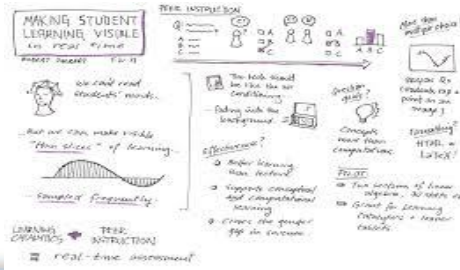 MAKING STUDENT
LEARNING VISIBLE
in real time
ROBERT TALBERT
We can't read
students' minds.
...But we can make visible
"thin slices" of learning...
...sampled frequently.
LEARNING
CATALYTICS
PEER
INSTRUCTION
= real-time assessment
PEER INSTRUCTION
Q:
A
B
C
A
B
C
A
B
C
A B C
The tech should
be like the air
conditioning...
...Fading into the
background.
Effectiveness?
Better learning
than lecture
Supports conceptual
and computational
learning
Closes the gender
gap in science.
Question
goals?
Concepts
more than
computations.
More than
multiple choice
REGION Qs
(students tap a
point on an
image)
Formatting?
HTML +
LaTeX!
PILOT
Two sections of linear
algebra,
Grant for Learning
Catalytics + loaner
tablets